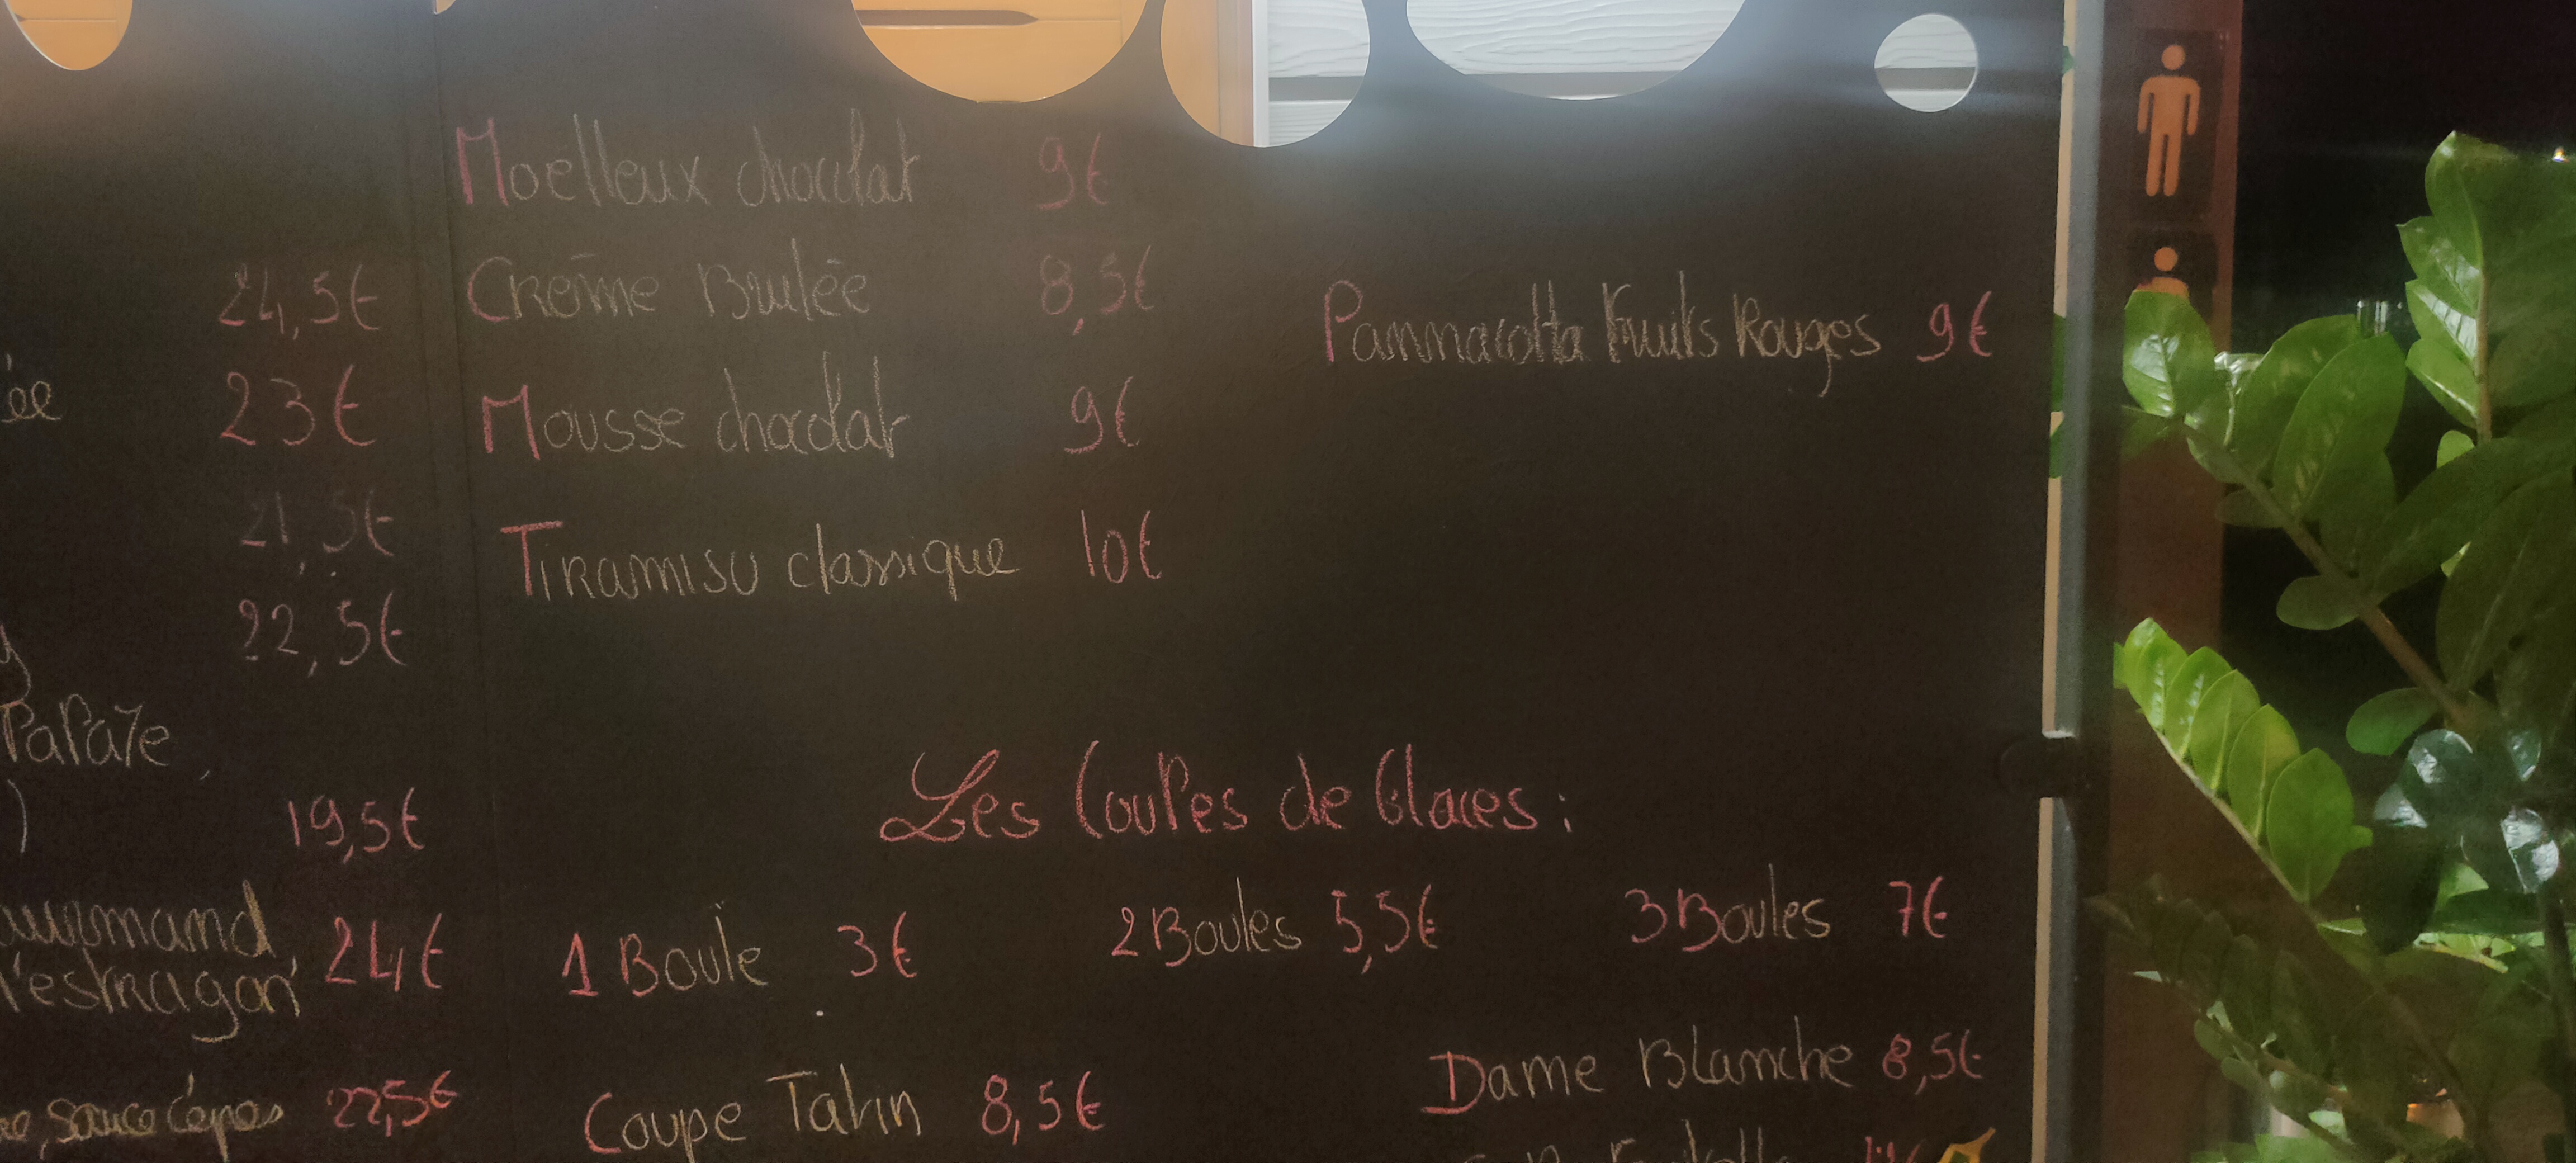 Moëlleux chocolat 9€
24,5€ Crème Brulée 8,5€
Pannacotta Fruits Rouges 9€
ée 23€ Mousse chocolat 9€
21,5€
Tiramisu classique 10€
22,5€
Les Coupes de Glaces :
19,5€
24€ 1 Boule 3€ 2 Boules 5,5€ 3 Boules 7€
l'estragon
Dame Blanche 8,5€
sauce Cèpes 22,5€ Coupe Tatin 8,5€